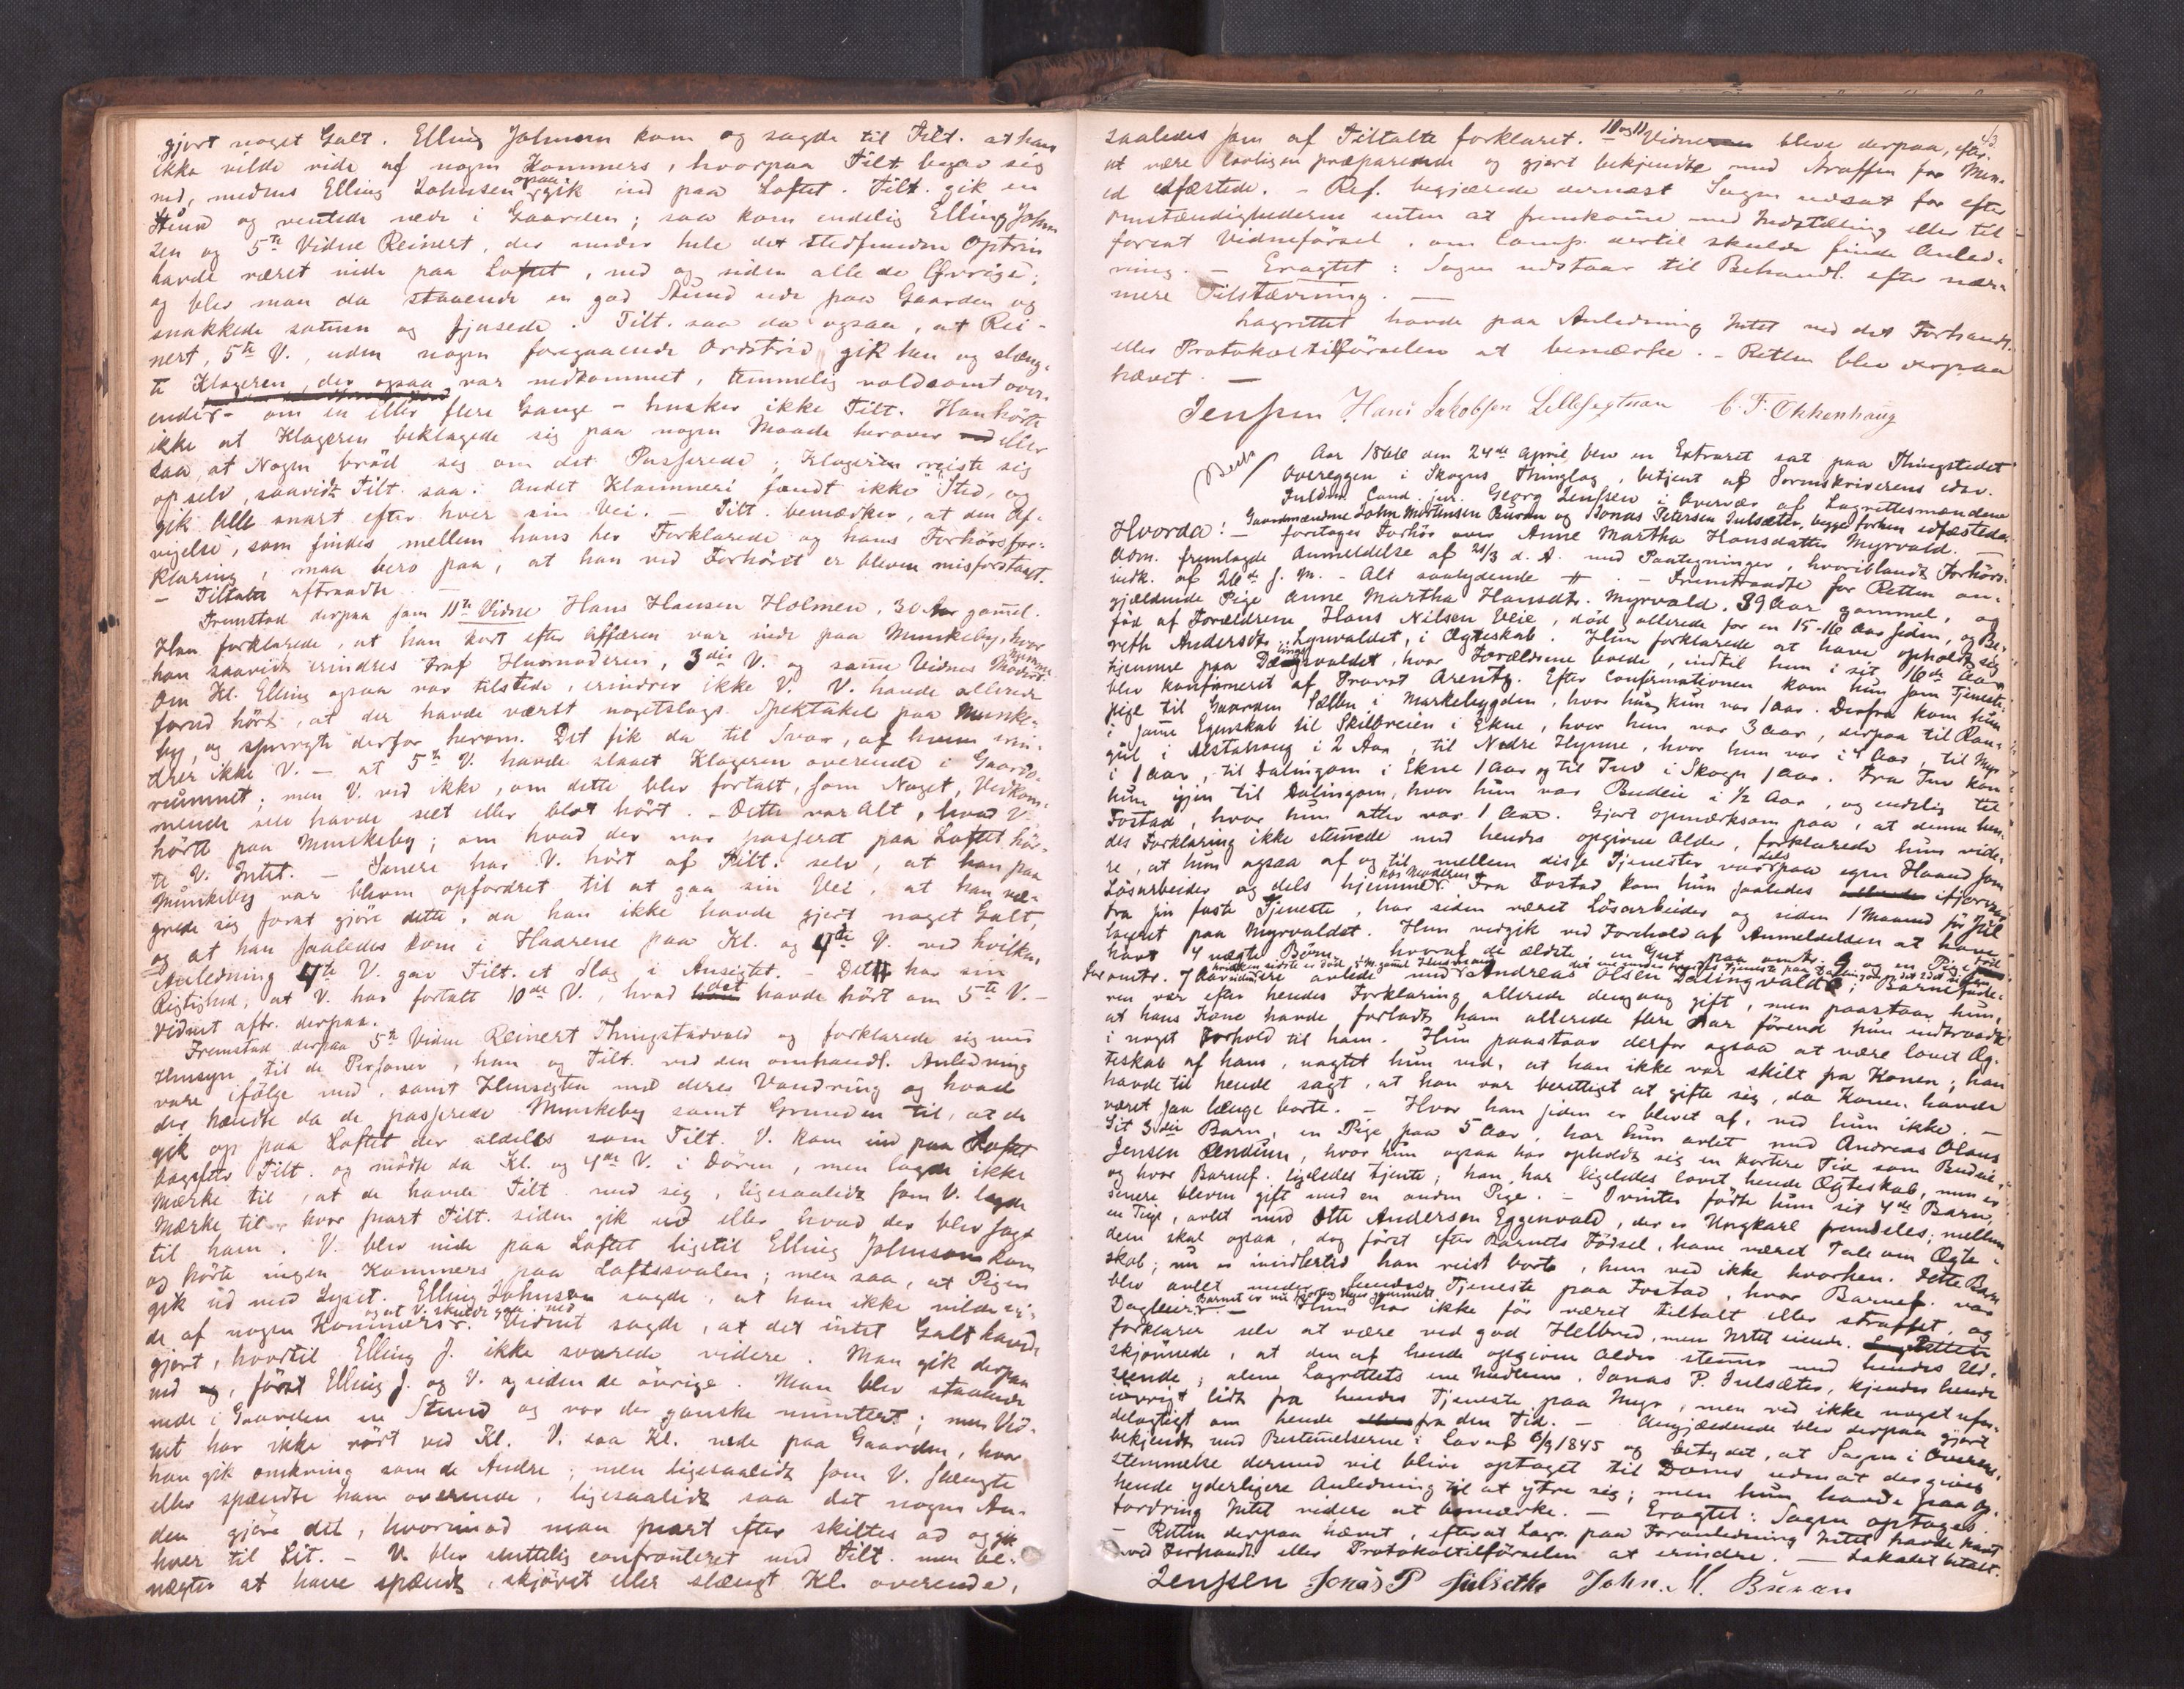 gjort noget Galt. Elling Johnsen kom og sagde til Tilt. at han
ikke vilde vide af nogen Kommers, hvorpaa Tilt. begav sig
ned, medens Elling Johnsen ogsaa gik ind paa Loftet. Tilt. gik en
Stund og ventede nede i Gaarden; saa kom endelig Elling John
sen og 5te Vidne Reinert, der under hele det stedfundne Optrin
havde været inde paa Loftet, ned og siden alle de Øvrige;
og blev man da staaende en god Stund nede paa Gaarden og
snakkede satmen og fjasede. Tilt. saa da ogsaa, at Rei-
nert, 5te V., uden nogen foregaaende Ordstrid gik hen og slæng-
te Klageren, der ogsaa var nedkommet, temmelig voldsomt over-
ende - om en eller flere Gange - husker ikke Tilt. Han hørte
ikke at Klageren beklagede sig paa nogen Maade herover eller
saa, at Nogen brød sig om det Passerede; Klageren reiste sig
op selv, saavidt Tilt. saa. Andet Klammeri fandt ikke Sted, og
gik Alle snart efter hver sin Vei. - Tilt. bemærker, at den Af-
vigelse, som findes mellem hans her Forklarede og hans Forhørsfor-
klaring, maa bero paa, at han ved Forhøret er bleven misforstaaet.
- Tiltalte aftraadte. -
Fremstod derpaa som 11te Vidne Hans Hansen Holmen, 30 Aar gaml.
Han forklarede, at han kort efter Affæren var inde paa Munkeby, hvor
han saavidt erindres traf Huusmoderen, 3die V. og samme Vidnes Moder hjemme.
Om Kl. Elling ogsaa var tilstede, erindrer ikke V. V. havde allerede
forud hørt, at der havde været nogetslags Spektakel paa Munke-
by, og spurgte derfor herom. Det fik da til Svar, af hvem erin-
drer ikke V. - at 5te V. havde slaaet Klageren overende i Gaards-
rummet; men V. ved ikke, om dette blev fortalt, som Noget, Vedkom-
mende selv havde seet eller blot hørt. - Dette var Alt, hvad V.
hørte paa Munkeby; om hvad der var passeret paa Loftet hør-
te V. Intet. - Senere har V. hørt af Tilt. selv, at han paa
Munkeby var bleven opfordret til at gaa sin Vei, at han næ-
grede sig forat gjøre dette, da han ikke havde gjort noget Galt,
og at han saaledes kom i Haarene paa Kl. og 4de V. ved hvilken
Anledning 4te V. gav Tilt. et Slag i Ansigtet. - Det har sin
Rigtighed, at V. har fortalt 10de V., hvad det havde hørt om 5te V. -
Vidnet aftr. derpaa.
Fremstod derpaa 5te Vidne Reinert Thingstadvald og forklarede sig med
Hensyn til de Personer, han og Tilt. ved den omhandl. Anledning
vare ifølge med, samt Hensigten med deres Vandring og hvad
der hændte da de passerede Munkeby samt Grunden til, at de
gik op paa Loftet der aldeles som Tilt. V. kom ind paa Loftet
bagefter Tilt. og mødte da Kl. og 4de V. i Døren, men lagde ikke
Mærke til, at de havde Tilt. med sig, ligesaalidt som V. lagde
Mærke til, hvor snart Tilt. siden gik ud eller hvad der blev sagt
til ham. V. blev inde paa Loftet ligetil Elling Johnson kom
og hørte ingen Kommers paa Loftssvalen; men saa, at Pigen
gik ud med Lyset. Elling Johnsen sagde, at han ikke vilde vi-
de af nogen Kommers og at V. skulde gaa ned. Vidnet sagde, at det intet Galt havde
gjort, hvortil Elling J. ikke svarede videre. Man gik derpaa
ned, først Elling J. og V. og siden de øvrige. Man blev staaende
nede i Gaarden en Stund og var der ganske muntert; men Vid-
net har ikke rørt ved Kl. V. saa Kl. nede paa Gaarden, hvor
han gik omkring som de Andre; men ligesaalidt som V. slængte
eller spændte ham overende, ligesaalidt saa det nogen An-
den gjøre det, hvorimod man snart efter skiltes ad og gik
hver til Sit. - V. blev sluttelig confronteret med Tilt. men be-
nægter at have spændt, skjøvet eller slængt Kl. overende,
saaledes som af Tiltalte forklaret. 10 og 11 Vidne bleve derpaa, efter
at være lovligen præparerede og gjort bekjendte med Straffen for Men-
ed edfæstede. - Ref. begjærede dernæst Sagen udsat for efter
Omstændighederne enten at fremkomme med Indstilling eller til
forent Vidneførsel, om Comp. dertil skulde finde Anled-
ning. - Eragtet: Sagen udstaar til Behandl. efter nær-
mere Tilstævning. -
Lagrettet havde paa Anledning Intet ved det Forhandl.
eller Protokoltilførselen at bemærke. - Retten blev derpaa
hævet. -
Jenssen Hans Jakobsen Lillesegtnan C. F. Okkenhaug
Aar 1866 den 24de April blev en Extraret sat paa Thingstedet
Overeggen i Skogns Thinglag, betjent af Sorenskriverens edsv.
Fuldm. Cand. jur. Georg Jenssen i Overvær af Lagrettesmændene
Gaardmændene John Mortensen Buran og Jonas Petersen Julsæter, begge forhen edfæstede.
Hvorda! - foretages Forhør over Anne Martha Hansdatter Myrvald. -
Adm. fremlagde Anmeldelse af 21/3 d. A. med Paategninger, hvoriblandt Forhørs-
indk. af 26de f. M. - Alt saalydende # . - Fremtraadte for Retten an-
gjældende Pige Anne Martha Hansdtr. Myrvald, 39 Aar gammel, og
fød af Forældrene Hans Nilsen Veie, død allerede for en 15-16 Aar siden, og Be-
reth Andersdtr. Lynvaldet, i Ægteskab. Hun forklarede at have opholdt sig
hjemme paa Dalingsvaldet, hvor Forældrene boede, indtil hun i sit 16de Aar
blev konfirmeret af Provst Arentz. Efter Confirmationen kom hun som Tjeneste-
pige til Gaarden Sælbu i Markebygden, hvor hun kun var 1 Aar. Derfra kom hun
i samme Egenskab til Skilbreien i Ekne, hvor hun var 3 Aar, derpaa til Ran-
gul i Alstahoug i 2 Aar, til Nedre Hynne, hvor hun var i 4 Aar, til Myr
i 1 Aar, til Dalingom i Ekne 1 Aar og til Tuv i Skogn 1 Aar. Fra Tuv kom
hun igjen til Dalingom, hvor hun var Budeie i 1/2 Aar, og endelig til
Fostad, hvor hun atter var 1 Aar. Gjort opmærksom paa, at denne hen-
des Forklaring ikke stemmede med hendes opgivne Alder, forklarede hun vide-
re, at hun ogsaa af og til mellem disse Tjenester var dels paa egen Haand som
Løsarbeider og dels hjemme hos Moderen. Fra Fostad kom hun saaledes ifjorvaar
fra sin faste Tjeneste, har siden været Løsarbeider og siden 1 Maaned før Jul
ligget paa Myrvaldet. Hun vedgik ved Forehold af Anmeldelsen at have
havt 4 uægte Børn, hvoraf de ældste, en Gut paa omtr. 9 og en Pige
omtr. 7 Aar avlede med Andreas Olsen Dalingvald; Barnefade-
ren var efter hendes Forklaring allerede dengang gift, men paastaar hun,
at hans Kone havde forladt ham allerede flere Aar førend hun indtraadte
i noget Forhold til ham. Hun paastaar derfor ogsaa at være lovet Æg-
teskab af ham, uagtet hun ved, at han ikke var skilt fra Konen; han
havde til hende sagt, at han var berettiget at gifte sig, da Konen havde
været saa længe borte. - Hvor han siden er blevet af, ved hun ikke. -
Sit 3die Barn, en Pige paa 5 Aar, har hun avlet med Andreas Olaus
Jensen Ændium, hvor hun ogsaa har opholdt sig en kortere Tid som Budeie,
og hvor Barnef. ligeledes tjente; han har ligeledes lovet hende Ægteskab, men er
senere bleven gift med en anden Pige. - Ivinter fødte hun sit 4de Barn,
en Pige, avlet med Otte Andersen Eggenvald, der er Ungkarl fremdeles; mellem
dem skal ogsaa, dog først efter Barnets Fødsel, have været Tale om Ægte-
skab; nu er imidlertid han reist borte, hun ved ikke hvorhen. Dette Barn
blev avlet under hendes Tjeneste paa Fostad, hvor Barnef. var
Dagleier. - Hun har ikke før været tiltalt eller straffet, og
forklarer selv at være ved god Helbred, men Intet eiende.
skjønnede, at den af hende opgivne Alder stemmer med hendes Ud-
seende; alene Lagrettets ene Medlem, Jonas P. Julsæter, kjender hende
iøvrigt lidt fra hendes Tjeneste paa Myr, men ved ikke noget ufor-
delagtigt om hende fra den Tid. - Angjældende blev derpaa gjort
bekjendt med Bestemmelserne i Lov af 6/9 1845 og betydet, at Sagen i Overens-
stemmelse dermed vil blive optaget til Doms uden at der gives
hende yderligere Anledning til at ytre sig; men hun havde paa Op-
fordring Intet videre at bemærke. - Eragtet: Sagen optages.
- Retten derpaa hævet, efterat Lagr. paa Foranledning Intet havde havt
ved Forhandl. eller Protokoltilførselen at erindre. - Lokalet betalt.
Jenssen Jonas P Julsethe John. M. Buran